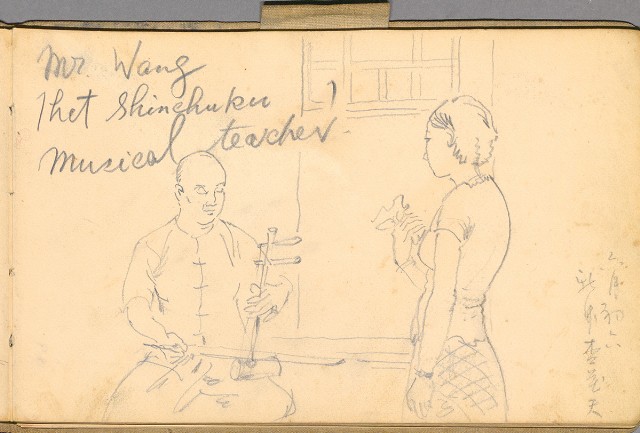 Mr. Wang
Thet Shinchuku
musical teacher
六月初六
新竹